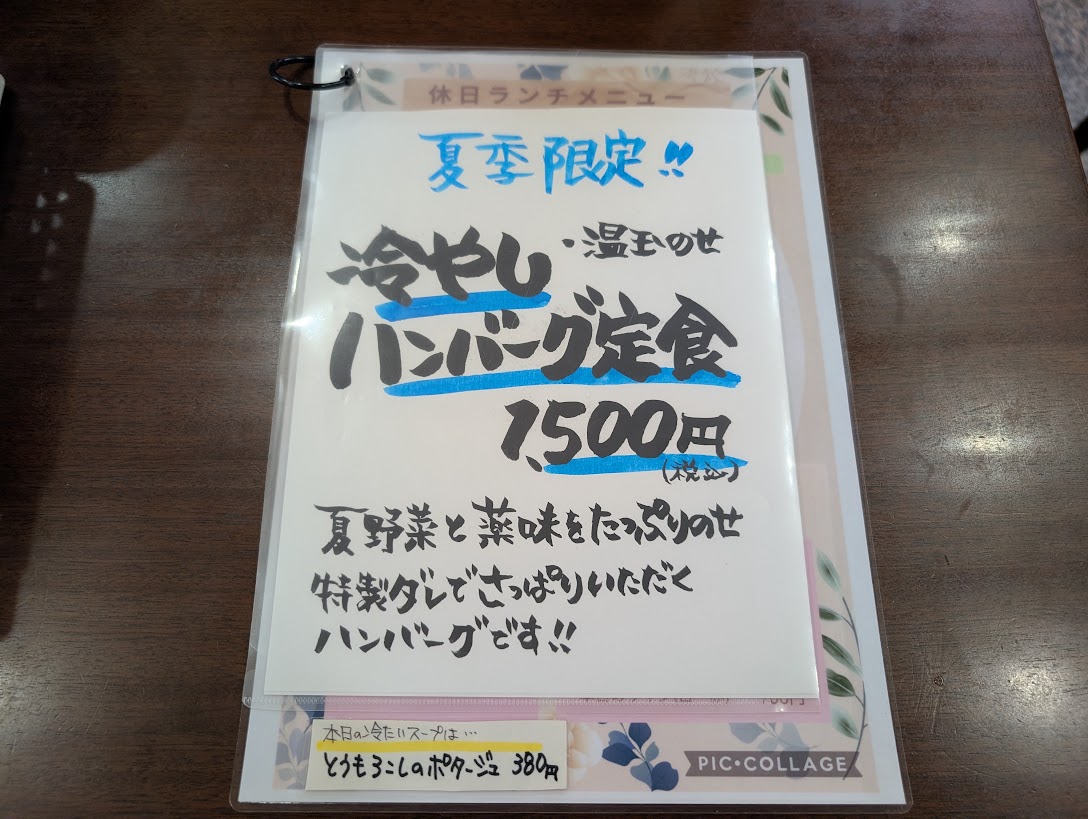 休日ランチメニュー
夏季限定!!
冷やし
・温玉のせ
ハンバーグ定食
1,500円
(税込)
夏野菜と薬味をたっぷりのせ
特製ダレでさっぱりいただく
ハンバーグです!!
本日の冷たいスープは…
とうもろこしのポタージュ 380円
PIC•COLLAGE